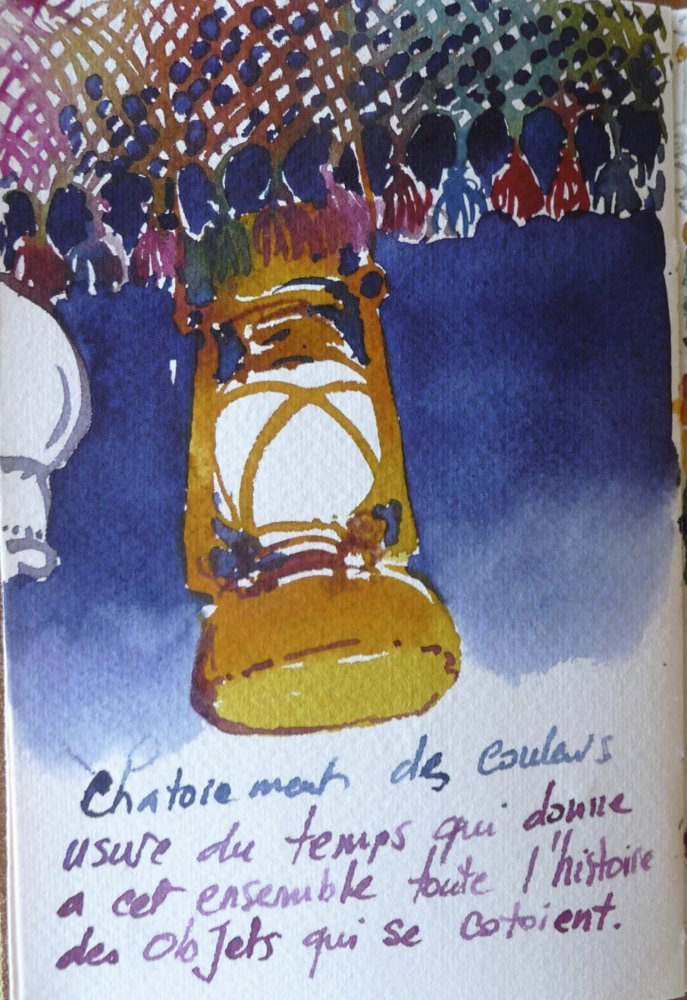 Chatoiement des couleurs
usure du temps qui donne
a cet ensemble toute l'histoire
des objets qui se cotoient.